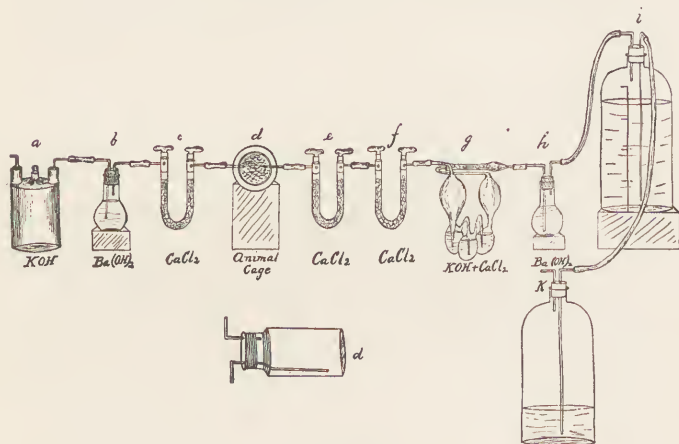 i
a
b
c
d
e
f
g
h
KOH
Ba(OH)2
CaCl2
Animal
Cage
CaCl2
CaCl2
KOH+CaCl2
Ba(OH)2
K
d